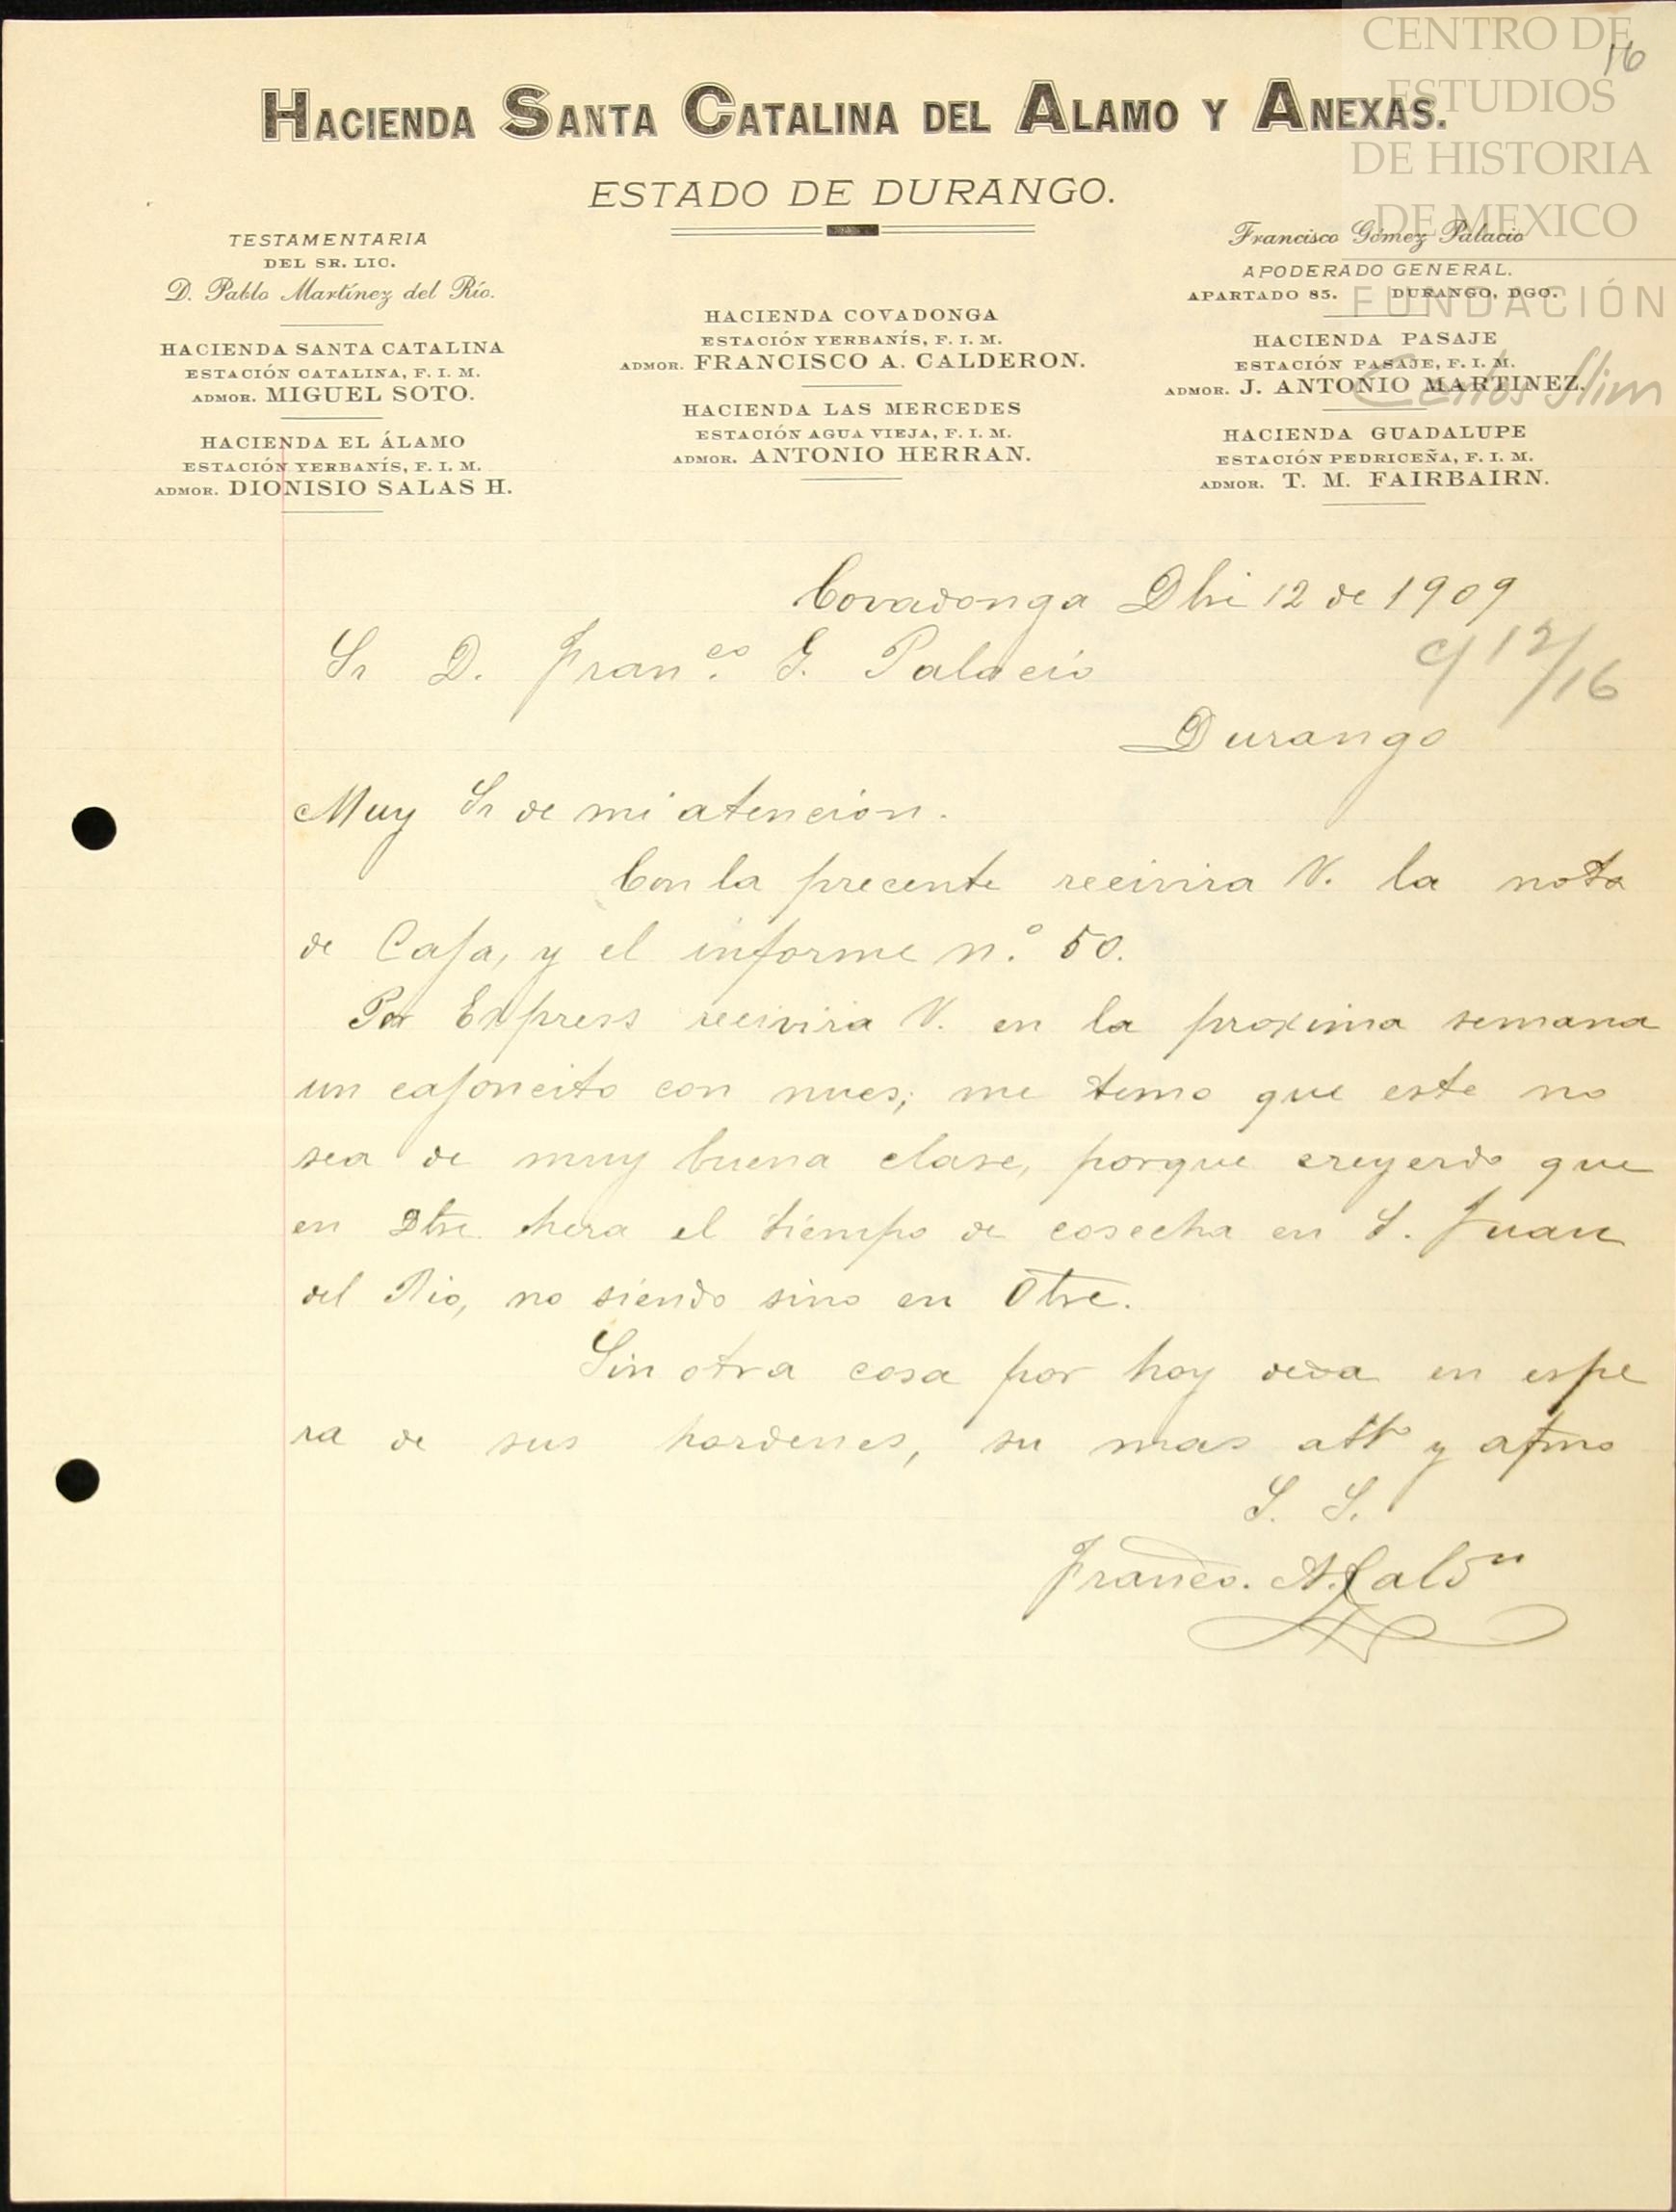 CENTRO DE
ESTUDIOS
DE HISTORIA
DE MEXICO
FUNDACIÓN
Carlos Slim
16
HACIENDA SANTA CATALINA DEL ALAMO Y ANEXAS.
ESTADO DE DURANGO.
TESTAMENTARIA
DEL SR. LIC.
D. Pablo Martínez del Río.
HACIENDA SANTA CATALINA
ESTACIÓN CATALINA, F. I. M.
ADMOR. MIGUEL SOTO.
HACIENDA EL ÁLAMO
ESTACIÓN YERBANÍS, F. I. M.
ADMOR. DIONISIO SALAS H.
HACIENDA COVADONGA
ESTACIÓN YERBANÍS, F. I. M.
ADMOR. FRANCISCO A. CALDERON.
HACIENDA LAS MERCEDES
ESTACIÓN AGUA VIEJA, F. I. M.
ADMOR. ANTONIO HERRAN.
Francisco Gómez Palacio
APODERADO GENERAL.
APARTADO 85. DURANGO, DGO.
HACIENDA PASAJE
ESTACIÓN PASAJE, F. I. M.
ADMOR. J. ANTONIO MARTINEZ.
HACIENDA GUADALUPE
ESTACIÓN PEDRICEÑA, F. I. M.
ADMOR. T. M. FAIRBAIRN.
Covadonga Dbre 12 de 1909
Sr D. Fran.co G. Palacio
c/ 12/16
Durango
Muy Sr de mi atencion.
Con la precente recivira V. la nota
de Caja, y el informe n.o 50.
Por Express recivira V. en la proxima semana
un cajoncito con nues; me temo que este no
sea de muy buena clase, porque creyendo que
en Dbre. hera el tiempo de cosecha en S. Juan
del Rio, no siendo sino en Otre.
Sin otra cosa por hoy en espe
ra de sus hordenes, su mas atto y afmo
S. S.
Franco. A. Caldon